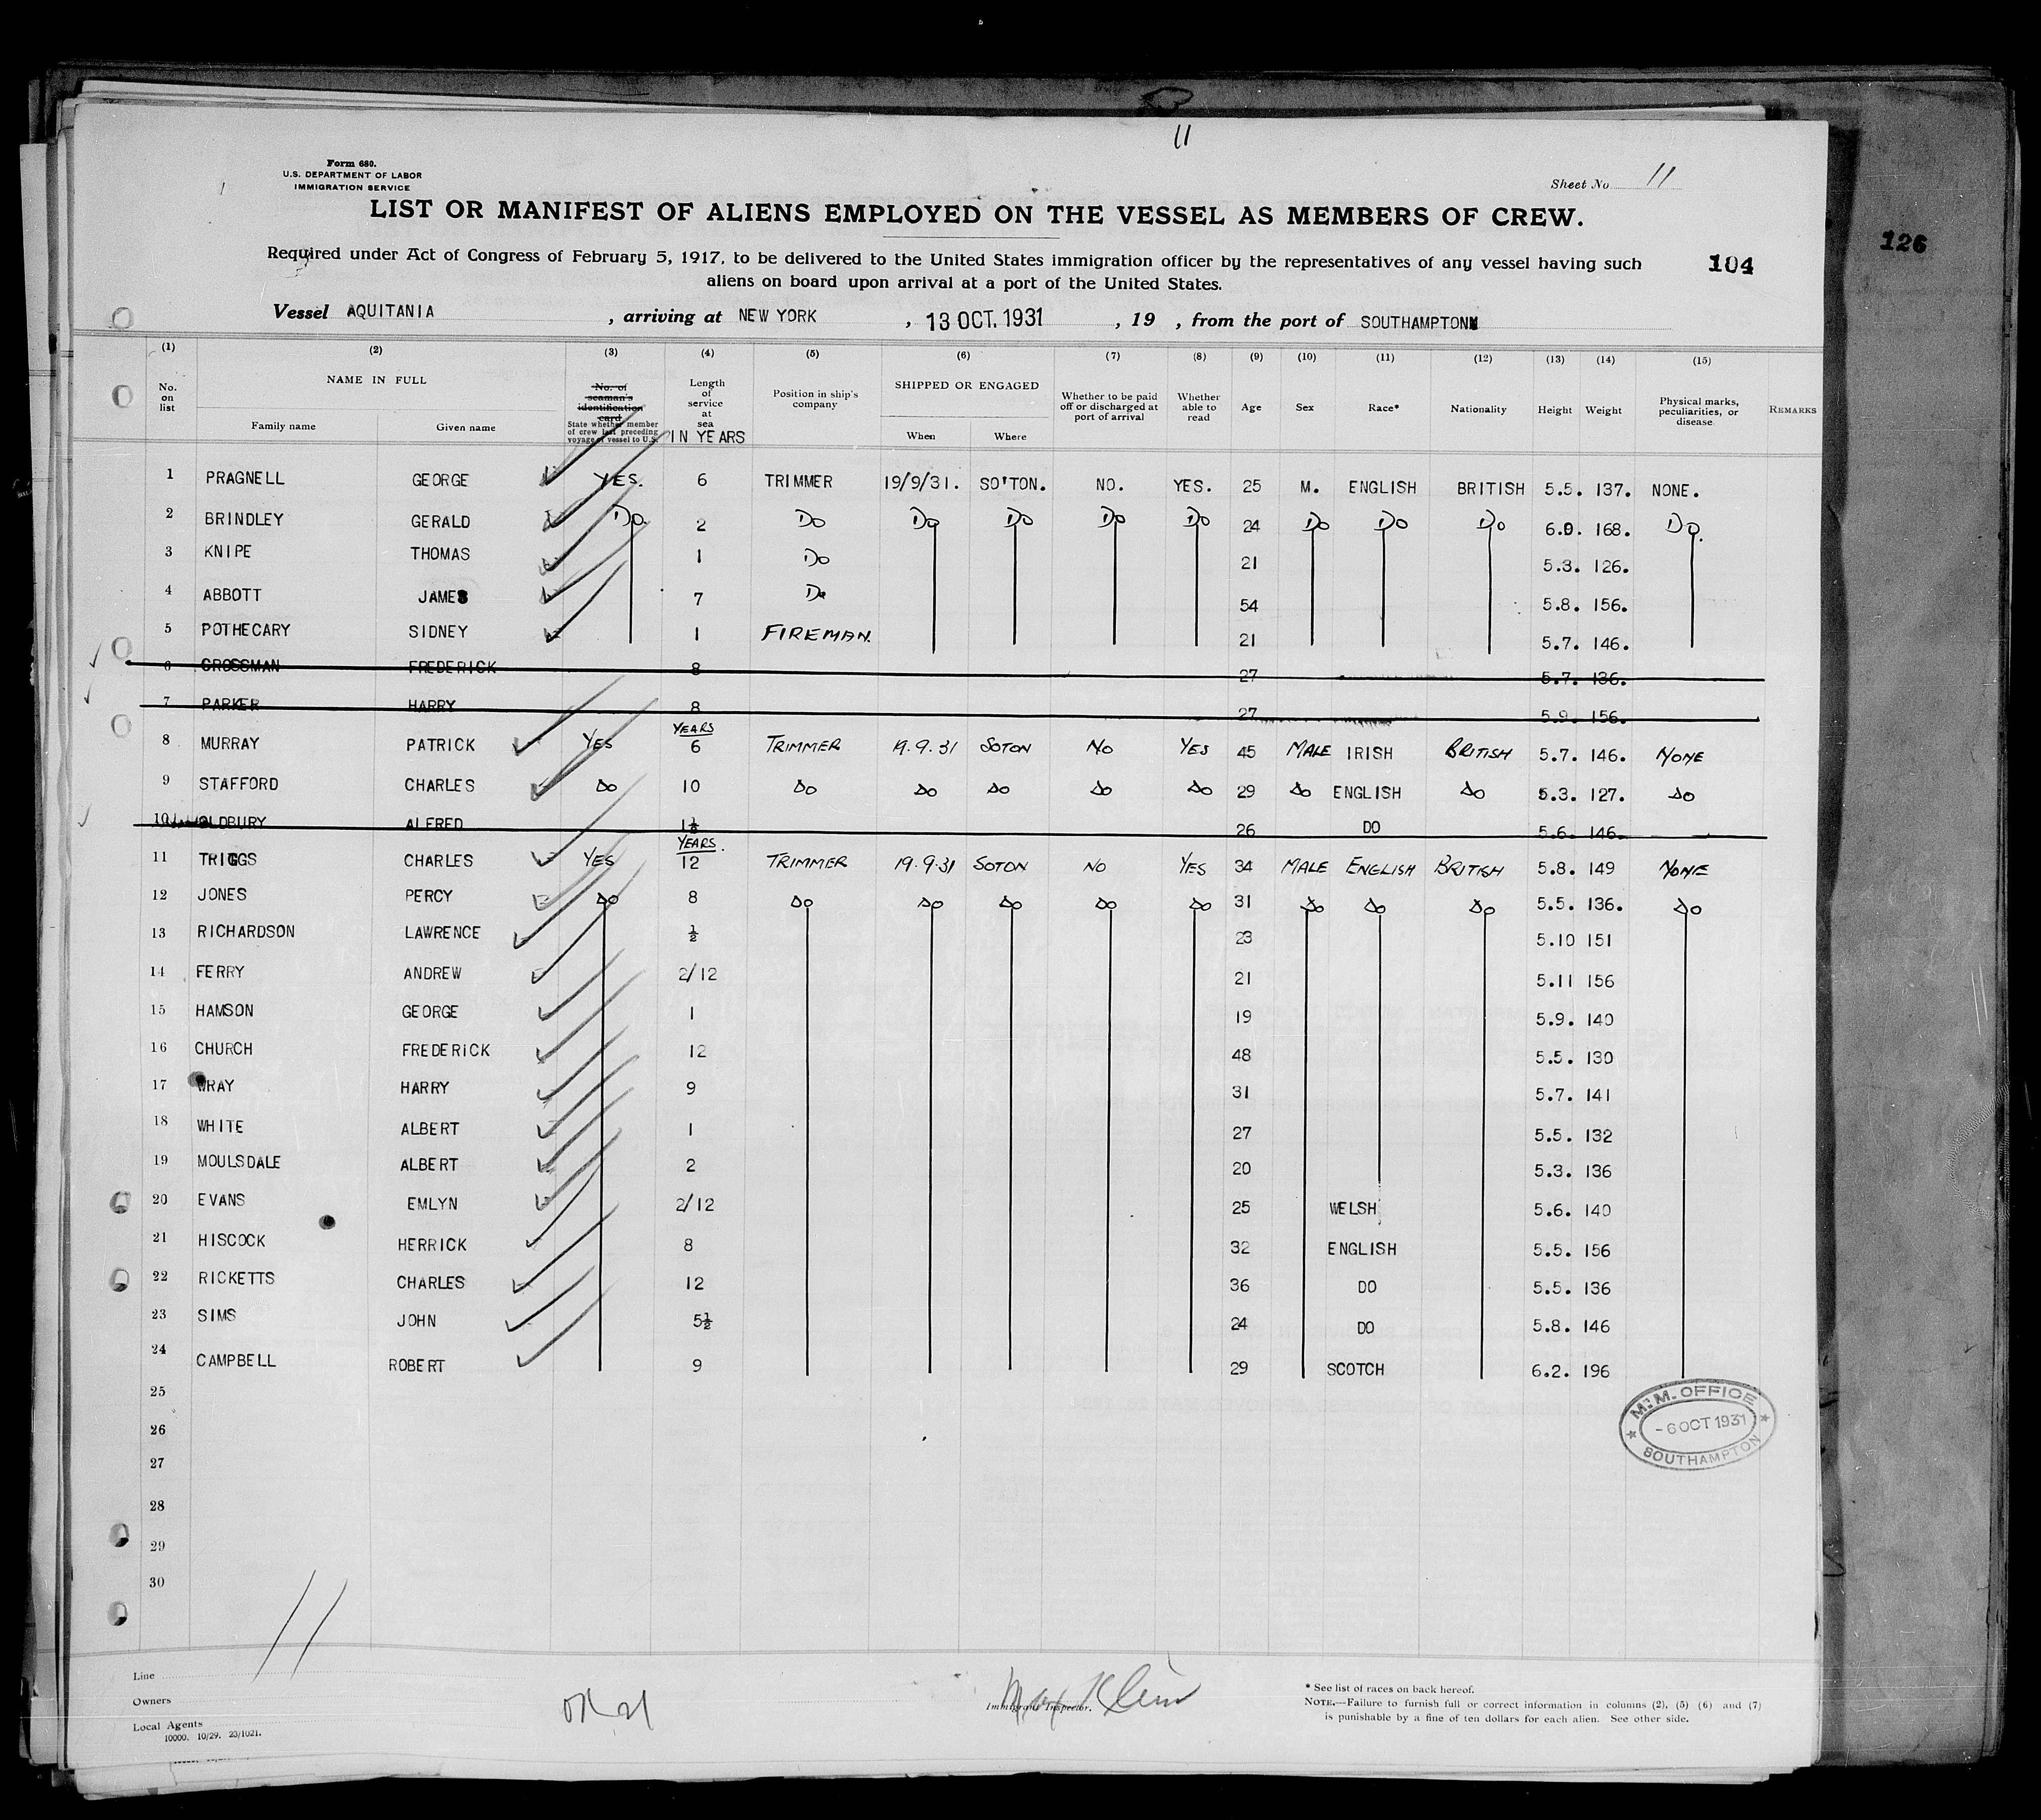 11
Form 680.
U.S. DEPARTMENT OF LABOR
IMMIGRATION SERVICE
Sheet No. 11
LIST OR MANIFEST OF ALIENS EMPLOYED ON THE VESSEL AS MEMBERS OF CREW.
126
Required under Act of Congress of February 5, 1917, to be delivered to the United States immigration officer by the representatives of any vessel having such
104
aliens on board upon arrival at a port of the United States.
Vessel AQUITANIA , arriving at NEW YORK , 13 OCT. 1931 , 19 , from the port of SOUTHAMPTON
(1) (2) (3) (4) (5) (6) (7) (8) (9) (10) (11) (12) (13) (14) (15)
No. on list
NAME IN FULL
Family name Given name
No. of seaman's identification card
State whether member of crew last preceding voyage of vessel to U.S.
Length of service at sea
IN YEARS
Position in ship's company
SHIPPED OR ENGAGED
When Where
Whether to be paid off or discharged at port of arrival
Whether able to read
Age Sex Race* Nationality Height Weight
Physical marks, peculiarities, or disease
REMARKS
1 PRAGNELL GEORGE YES. 6 TRIMMER 19/9/31. SO'TON. NO. YES. 25 M. ENGLISH BRITISH 5.5. 137. NONE.
2 BRINDLEY GERALD Do. 2 Do Do Do Do Do 24 Do Do Do 6.0. 168. Do.
3 KNIPE THOMAS 1 Do 21 5.3. 126.
4 ABBOTT JAMES 7 Do 54 5.8. 156.
5 POTHECARY SIDNEY 1 FIREMAN. 21 5.7. 146.
6 GROSSMAN FREDERICK 8 27 5.7. 136.
7 PARKER HARRY 8 27 5.9. 156.
YEARS
8 MURRAY PATRICK YES 6 TRIMMER 19.9.31 SOTON NO YES 45 MALE IRISH BRITISH 5.7. 146. NONE
9 STAFFORD CHARLES Do 10 Do Do Do Do Do 29 Do ENGLISH Do 5.3. 127. Do
10 OLDBURY ALFRED 26 DO 5.6. 146.
YEARS.
11 TRIGGS CHARLES YES 12 TRIMMER 19.9.31 SOTON NO YES 34 MALE ENGLISH BRITISH 5.8. 149 NONE
12 JONES PERCY Do 8 Do Do Do Do Do 31 Do Do Do 5.5. 136. Do
13 RICHARDSON LAWRENCE ½ 23 5.10 151
14 FERRY ANDREW 2/12 21 5.11 156
15 HAMSON GEORGE 1 19 5.9. 140
16 CHURCH FREDERICK 12 48 5.5. 130
17 WRAY HARRY 9 31 5.7. 141
18 WHITE ALBERT 1 27 5.5. 132
19 MOULSDALE ALBERT 2 20 5.3. 136
20 EVANS EMLYN 2/12 25 WELSH 5.6. 140
21 HISCOCK HERRICK 8 32 ENGLISH 5.5. 156
22 RICKETTS CHARLES 12 36 DO 5.5. 136
23 SIMS JOHN 5½ 24 DO 5.8. 146
24 CAMPBELL ROBERT 9 29 SCOTCH 6.2. 196
25
26
27
28
29
30
M.M. OFFICE
-6 OCT 1931
SOUTHAMPTON
11
Line
Owners
Local Agents
10000. 10/29. 23/1021.
Max Klein
Immigrant Inspector.
* See list of races on back hereof.
NOTE.—Failure to furnish full or correct information in columns (2), (5) (6) and (7)
is punishable by a fine of ten dollars for each alien. See other side.